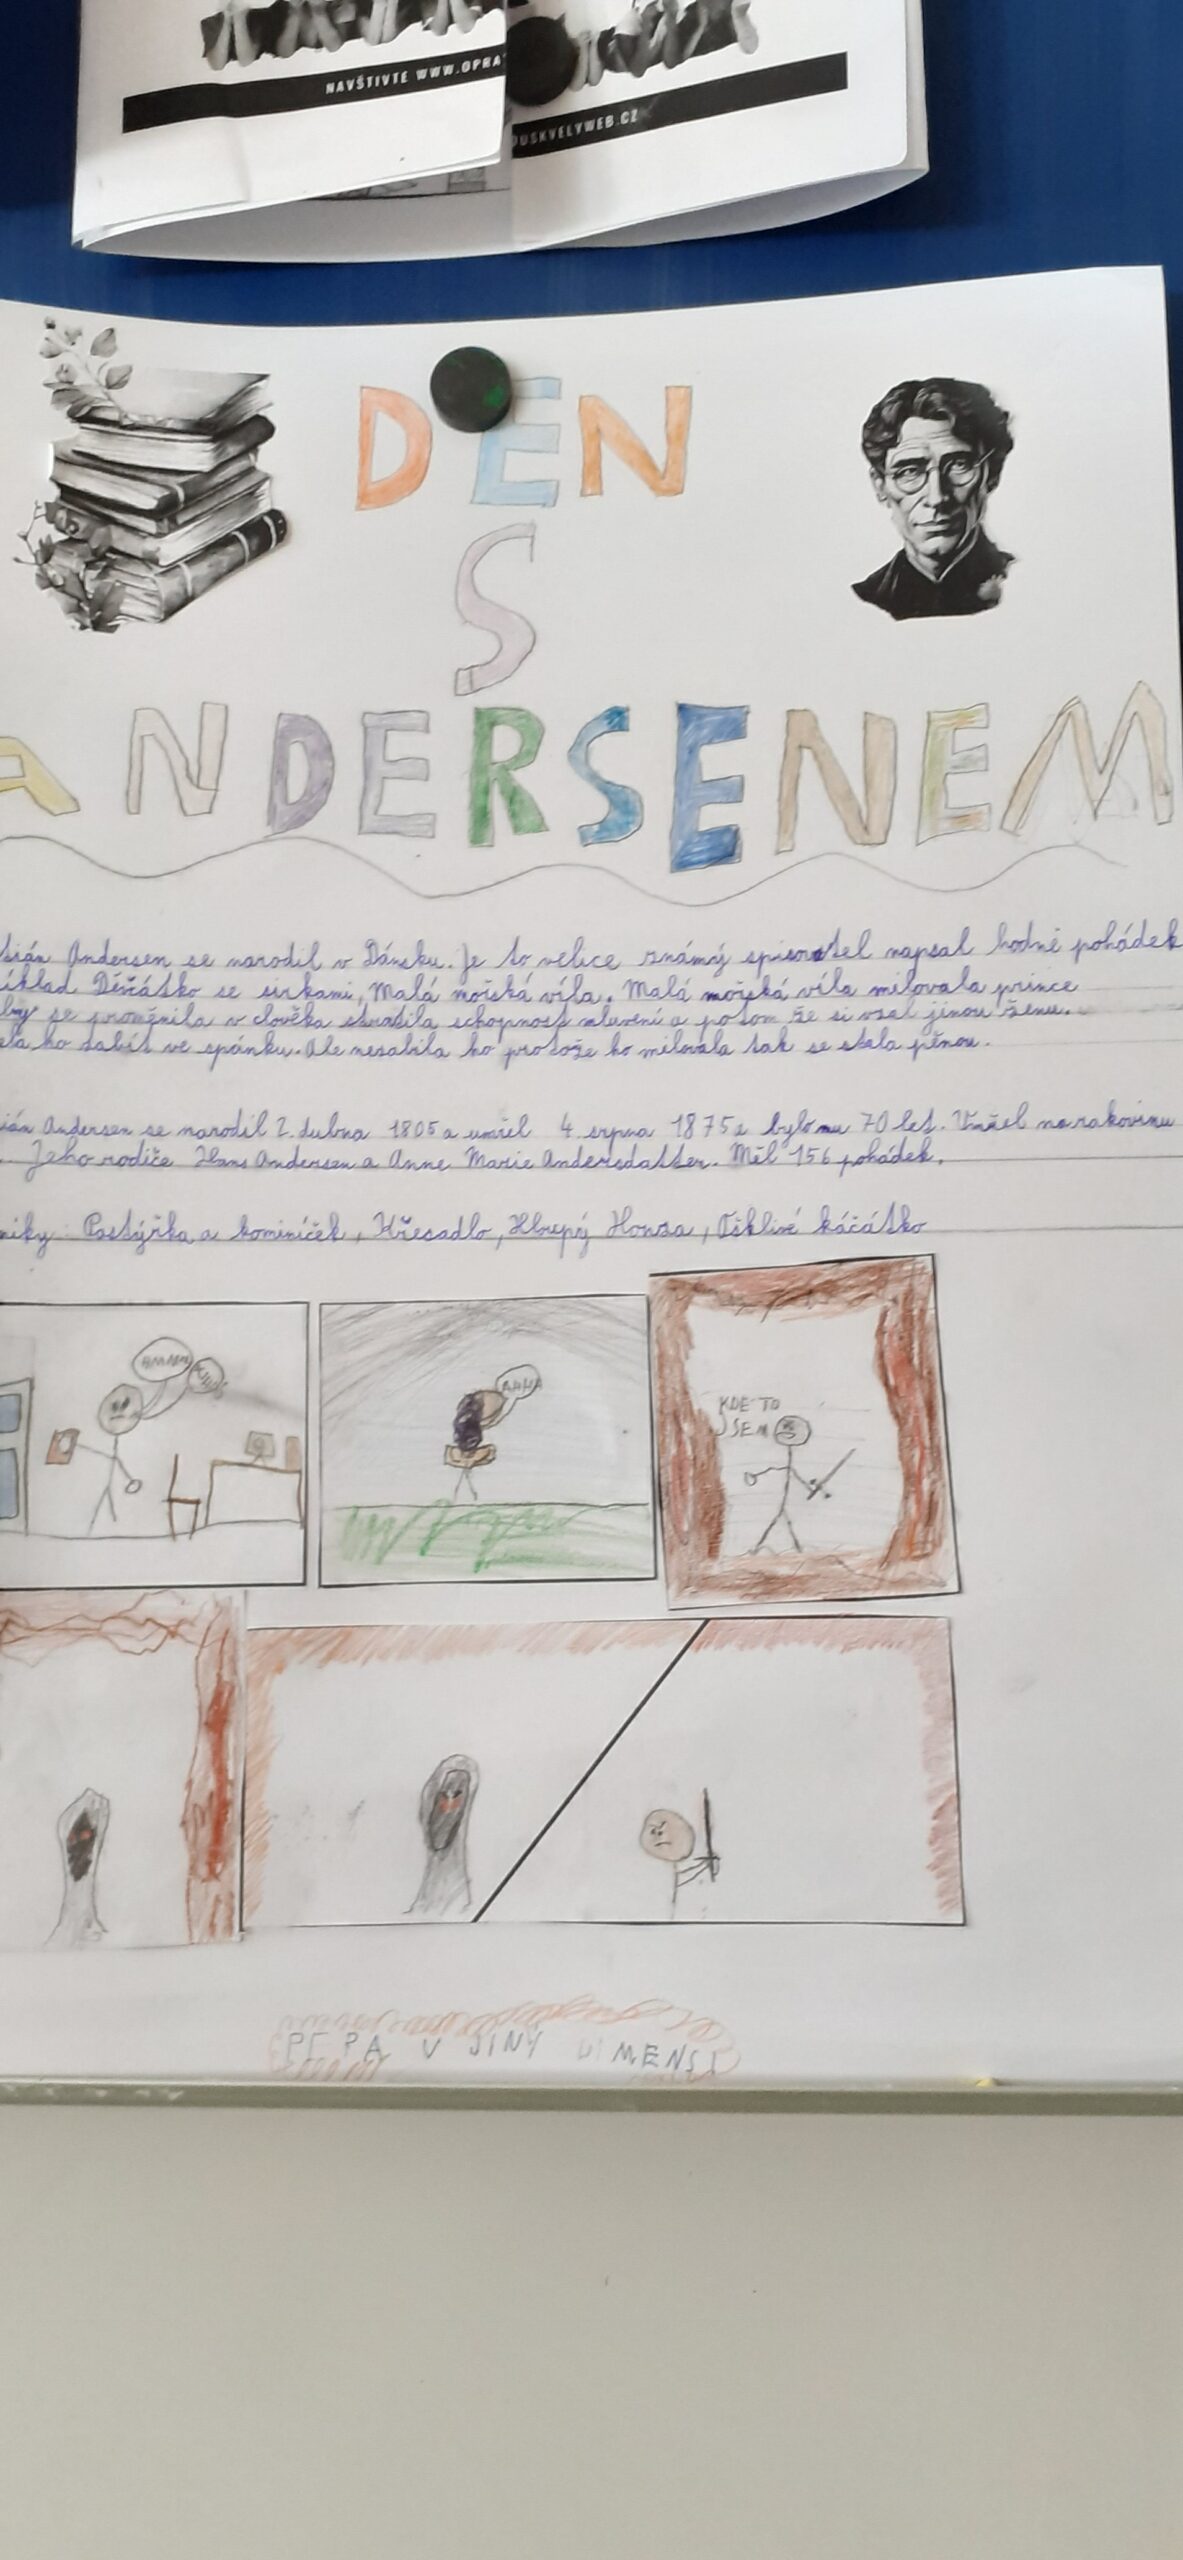 NAVŠTIVTE WWW.OPRA
OUSKVELYWEB.CZ
DEN
S
ANDERSENEM
tián Andersen se narodil v Dánsku. Je to velice známý spisovatel napsal hodně pohádek
íklad Děvčátko se sirkami, Malá mořská víla. Malá mořská víla milovala prince
aby se proměnila v člověka ztratila schopnost mluvení a potom že si vzal jinou ženu.
ela ho zabít ve spánku. Ale nezabila ho protože ho milovala tak se stala pěnou.
tián Andersen se narodil 2. dubna 1805 a umřel 4. srpna 1875 a bylo mu 70 let. Umřel na rakovinu
Jeho rodiče Hans Andersen a Anne Marie Andersdatter. Měl 156 pohádek.
níky Pastýřka a kominíček, Křesadlo, Hloupý Honza, Ošklivé káčátko
AHHH
KDE TO
JSEM
PEPA V JINÝ DIMENSI